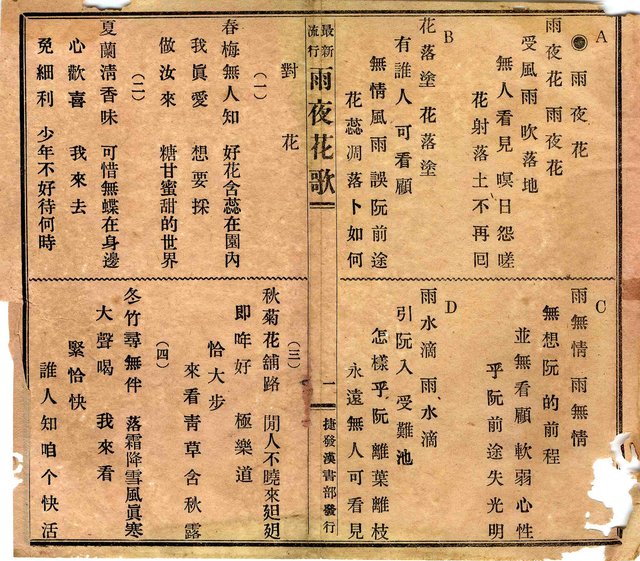 雨夜花
A
雨夜花 雨夜花
受風雨 吹落地
無人看見 暝日怨嗟
花謝落土不再囘
B
花落塗 花落塗
有誰人 可看顧
無情風雨 誤阮前途
花蕊凋落卜如何
C
雨無情 雨無情
無想阮的前程
並無看顧 軟弱心性
乎阮前途失光明
D
雨水滴 雨水滴
引阮入 受難池
怎樣乎阮 離葉離枝
永遠無人可看見
最新流行 雨夜花歌
一
捷發漢書部發行
對花
(一)
春梅無人知 好花含蕊在園內
我眞愛 想要採
做汝來 糖甘蜜甜的世界
(二)
夏蘭淸香味 可惜無蝶在身邊
心歡喜 我來去
免細利 少年不好待何時
(三)
秋菊花舖路 閒人不曉來𨑨𨑨
即哖好 極樂道
恰大步
來看靑草含秋露
(四)
冬竹尋無伴 落霜降雪風眞寒
大聲喝 我來看
緊恰快
誰人知咱个快活